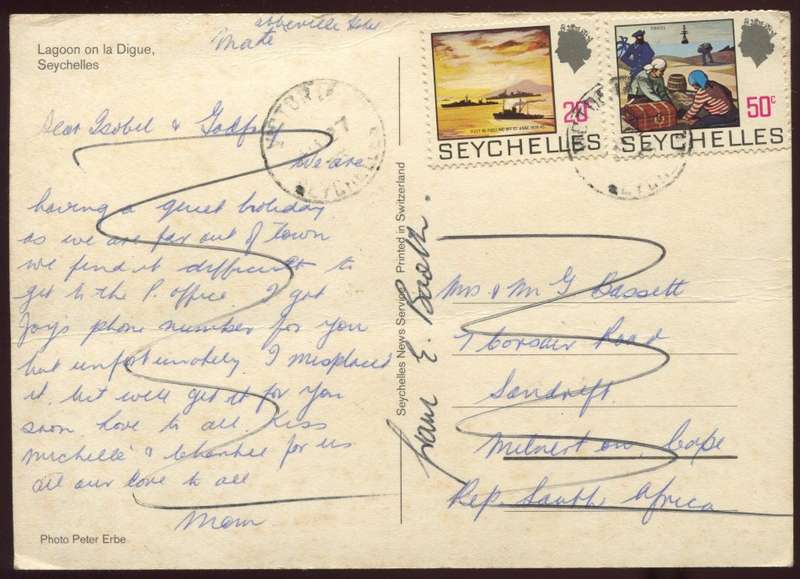 Abbeville Hotel
Mahe
Lagoon on la Digue,
Seychelles
Dear Isobel & Godfrey
We are
having a quiet holiday
as we are far out of town
we find it difficult to
get to the P. office. I got
Joy's phone number for you
but unfortunately I misplaced
it, but will get it for you
soon love to all. Kiss
Michelle & Chantel for us
all our love to all
Mom
Photo Peter Erbe
Seychelles News Service Printed in Switzerland
from E. Booth.
20c
SEYCHELLES
50c
SEYCHELLES
VICTORIA
SEYCHELLES
Mrs & Mr G Bassett
7 Corsair Road
Sandrift
Milnerton, Cape
Rep. South Africa